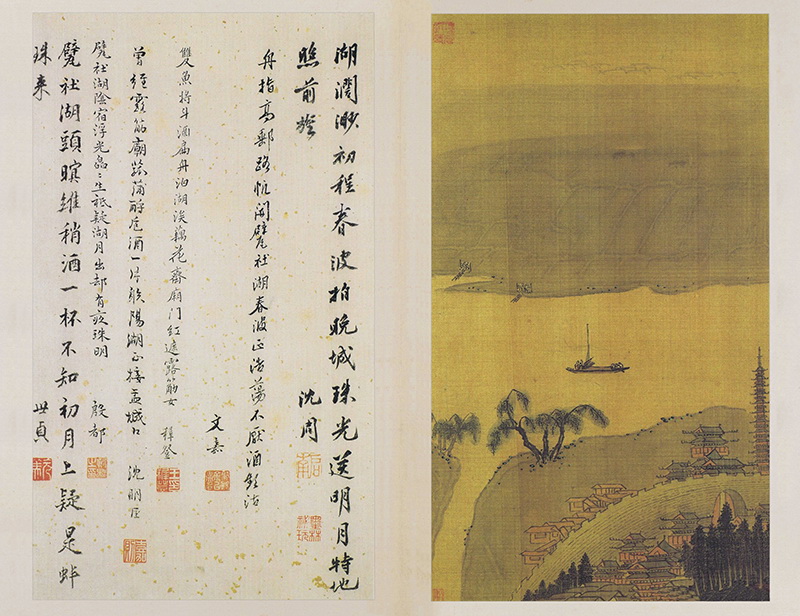 湖濶渺初程春波拍晚城珠光送明月特地
照前旌 沈周
舟指高郵路帆開甓社湖春波正浩蕩不厭酒頻沽
文嘉
雙魚將斗酒扁舟泊湖滨藕花齊廟门紅遮露筋女 穉登
曾經露筋廟菰蒲酹卮酒一片陽湖正接孟城口 沈明臣
甓社湖陰宿浮光晶〻生秖疑湖月出却有夜珠明 殷都
甓社湖頭暝維稍酒一杯不知初月上疑是蚌
珠来 世貞